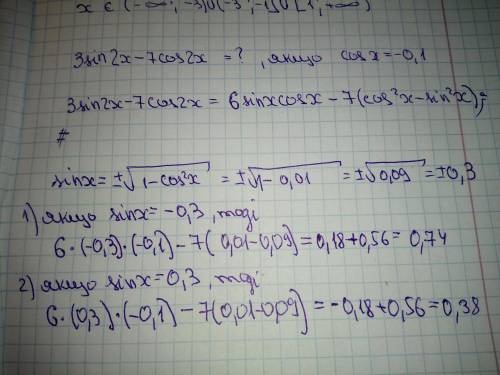 x ∈ (-∞; -3)∪(-3; -1]∪[1; +∞)
3sin2x-7cos2x = ? , якщо cosx=-0,1
3sin2x-7cos2x = 6sinxcosx - 7(cos²x-sin²x);
#
sinx= ±√1-cos²x = ±√1-0,01 = ±√0,09 = ±0,3
1) якщо sinx=-0,3, тоді
6·(-0,3)·(-0,1)-7(0,01-0,09)=0,18+0,56= 0,74
2) якщо sinx=0,3, тоді
6·(0,3)·(-0,1)-7(0,01-0,09)=-0,18+0,56=0,38